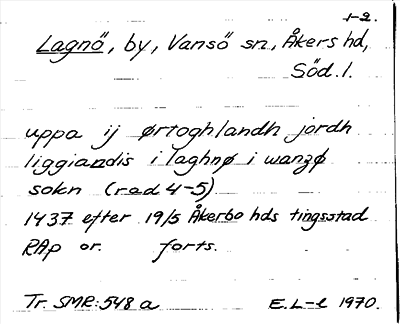 1-2.
Lagnö, by, Vansö sn, Åkers hd,
Söd. l.
uppa ij ørtoghlandh jordh
liggiandis i laghnø i wanzø
sokn (rad 4-5)
1437 efter 19/5 Åkerbo hds tingsstad
RAp or. forts.
Tr. SMR: 548 a E.L-l 1970.